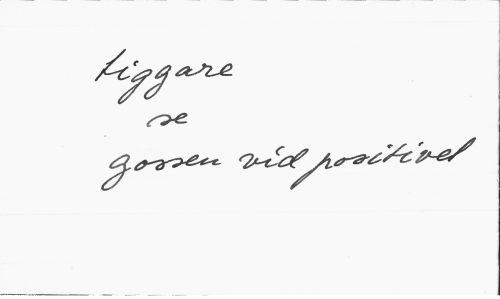 tiggare
se
gossen vid positivet